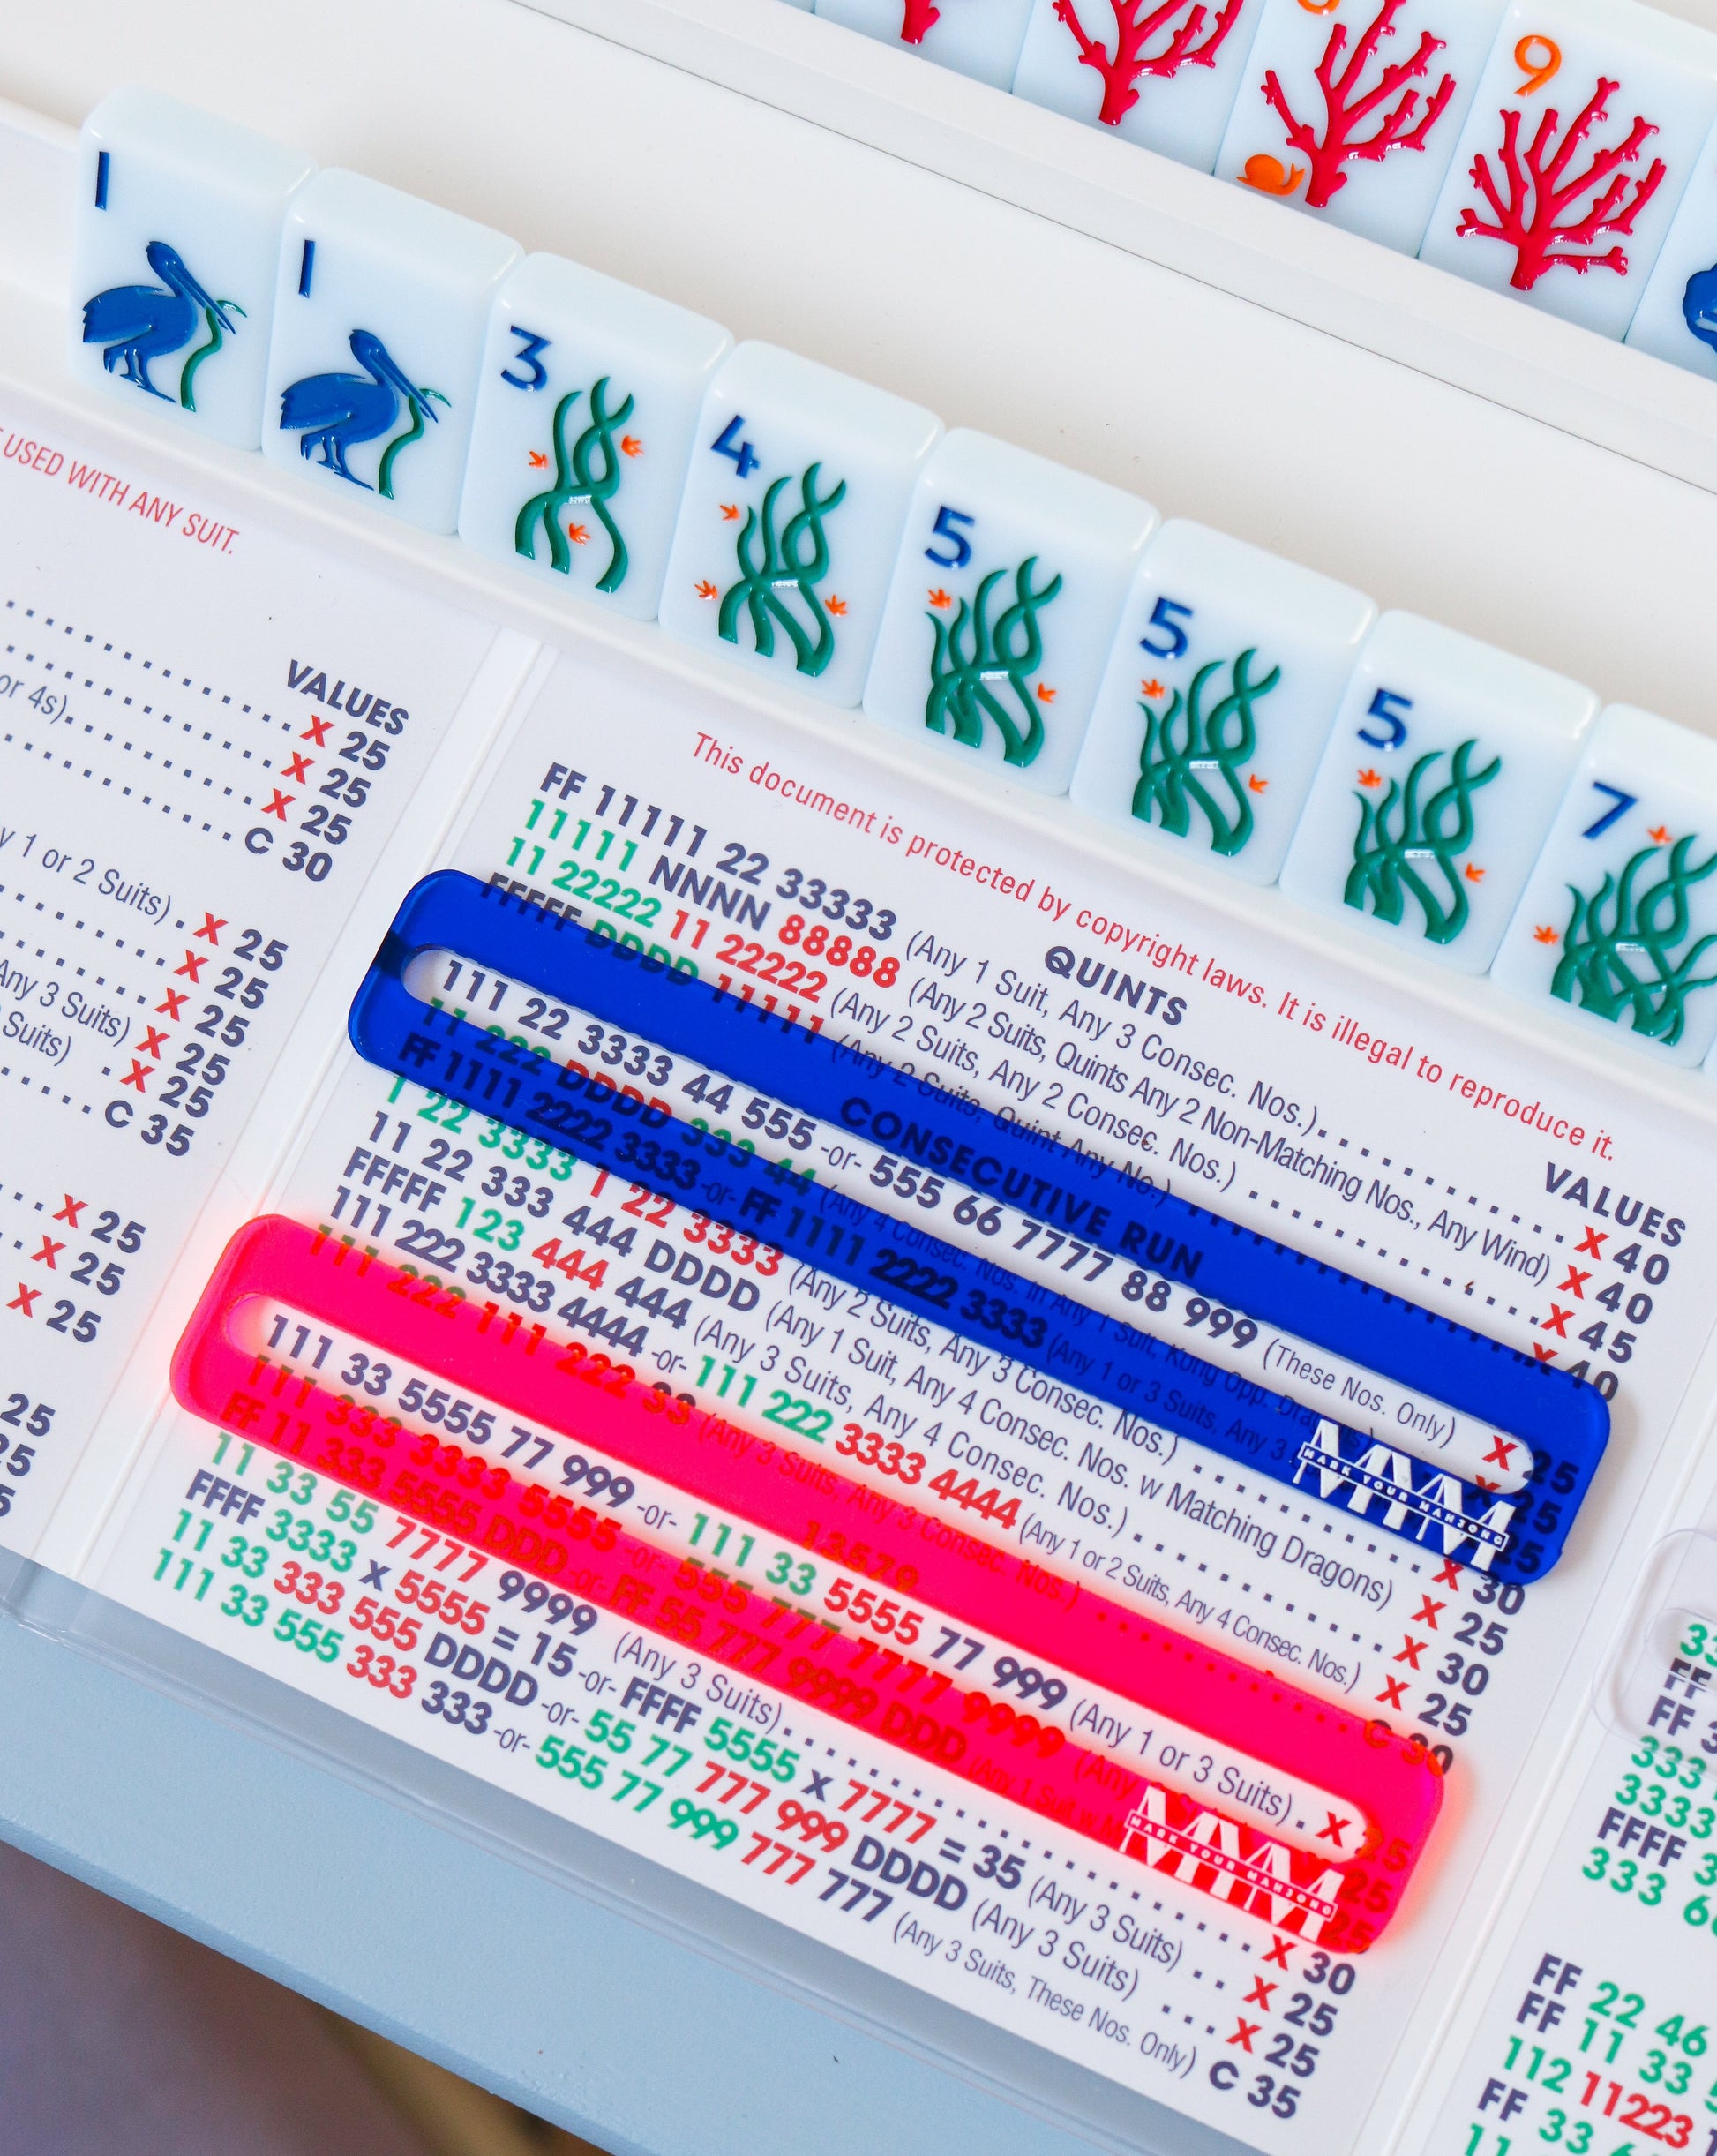 9
1
1
3
4
5
5
5
7
USED WITH ANY SUIT.
VALUES
X 25
X 25
or 4s) X 25
C 30
y 1 or 2 Suits) . X 25
X 25
X 25
Any 3 Suits) X 25
Suits) . X 25
C 35
X 25
X 25
X 25
25
25
This document is protected by copyright laws. It is illegal to reproduce it.
QUINTS VALUES
FF 11111 22 33333 (Any 1 Suit, Any 3 Consec. Nos.) X 40
11111 NNNN 88888 (Any 2 Suits, Quints Any 2 Non-Matching Nos., Any Wind) X 40
11 22222 11 22222 (Any 2 Suits, Any 2 Consec. Nos.) X 45
FFFFF DDDD 11111 (Any 2 Suits, Quint Any No.) X 40
CONSECUTIVE RUN
111 22 3333 44 555 -or- 555 66 7777 88 999 (These Nos. Only) X 25
11 222 DDDD 333 44 (Any 4 Consec. Nos. in Any 1 Suit, Kong Opp. Dragons) X 25
FF 1111 2222 3333 -or- FF 1111 2222 3333 (Any 1 or 3 Suits, Any 3 25
1 22 3333 1 22 3333 (Any 2 Suits, Any 3 Consec. Nos.) X 30
11 22 333 444 DDDD (Any 1 Suit, Any 4 Consec. Nos. w Matching Dragons) X 25
FFFFF 123 444 444 (Any 3 Suits, Any 4 Consec. Nos.) X 30
111 222 3333 4444 -or- 111 222 3333 4444 (Any 1 or 2 Suits, Any 4 Consec. Nos.) X 25
111 222 111 222 33 (Any 3 Suits, Any 3 Consec. Nos.) C 30
MARK YOUR MAHJONG
13579
111 33 5555 77 999 -or- 111 33 5555 77 999 (Any 1 or 3 Suits) . X 25
111 333 3333 5555 -or- 555 777 7777 9999 (Any 25
FF 11 333 5555 DDD -or- FF 55 777 9999 DDD (Any 1 Suit w 25
11 33 55 7777 9999 (Any 3 Suits) X 30
FFFF 3333 x 5555 = 15 -or- FFFF 5555 x 7777 = 35 (Any 3 Suits) X 25
11 33 333 555 DDDD -or- 55 77 777 999 DDDD (Any 3 Suits) X 25
111 33 555 333 333 -or- 555 77 999 777 777 (Any 3 Suits, These Nos. Only) C 35
MARK YOUR MAHJONG
33
FF
FF 3
333
3333
FFFF 3
333 6
FF 22 46
FF 11 33
112 11223
FF 33
11